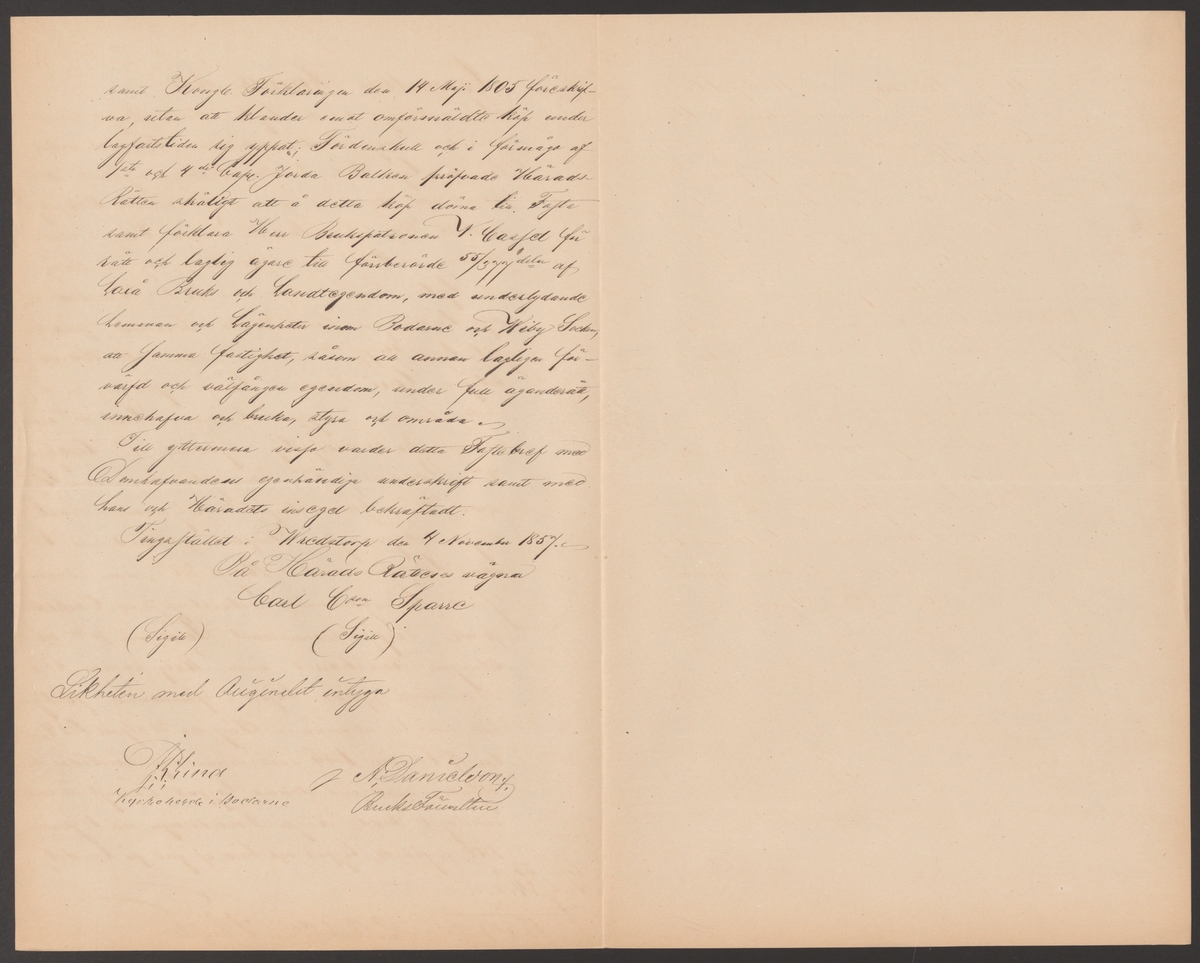 samt Kongle Förklaringen den 14 Maji 1805 föreskif-
va, utan att klander emot omförmäldte köp under
lagfartstiden sig yppat; Fördenskull och i förmågo af
1sta och 4de Cap. Jorda Balken pröfvade Härads-
Rätten skäligt att å detta köp döma till Fasta
samt förklara Herr Brukspatronen V. Cassel för
rätt och laglig ägare till förrberörde delar af
Laxå Bruks och Landtegendom, med underlydande
hemman och Lägenheter inom Bodarne och Wiby Socken,
att samma fastighet, såsom all annan lagligen för-
värfd och välfången egendom, under full äganderätt,
innehafva och bruka, styra och områda.
Till yttermera visso varder detta Fastebref med
Domhafvandens egenhändige underskrift samt med
hans och Häradets insegel bekräftadt.
Tingsstället i Wredstorp den 4 November 1857.
På Härads Rättens vägnar
Carl Cson Sparre
(Sigill) (Sigill)
Likheten med Originalet intyga
Lind N. Danielsson
Kyrkoherde i Bodarne Bruks Förvalter